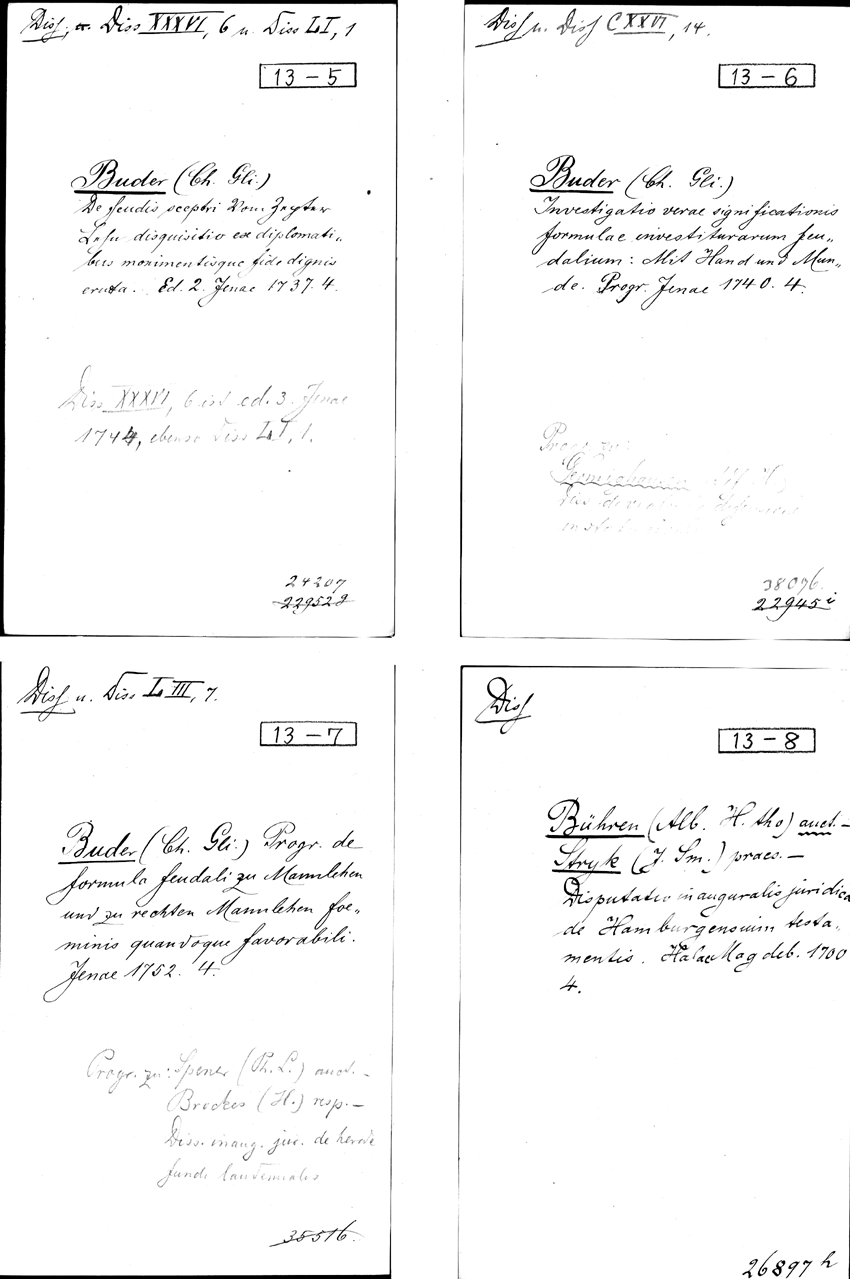 Diss; Diss XXXVI, 6 u. Diss LI, 1
13 – 5
Buder (Ch. Gli.)
De feudis sceptri Vom Zepter
Lehn disquisitio ex diplomati„
bus monimentisque fide dignis
eruta. Ed. 2. Jenae 1737. 4.
Diss XXXVI, 6 ist ed. 3. Jenae
1744, ebenso Diss LI, 1.
24207
22952g
Diss u. Diss CXXVI, 14.
13 – 6
Buder (Ch. Gli.)
Investigatio verae significationis
formulae investiturarum feu„
dalium: Mit Hand und Mun„
de. Progr. Jenae 1740. 4.
Progr. zu:
38076.
22945 i
Diss u. Diss LIII, 7.
13 – 7
Buder (Ch. Gli.) Progr. de
formula feudali zu Mannlehen
und zu rechten Mannlehen foe„
minis quandoque favorabili.
Jenae 1752. 4.
Progr. zu: Spener (Ph. L.) auct. –
Brockes (H.) resp. –
Diss. inaug. jur. de herede
fundi laudemialis
35516.
Diss
13 – 8
Bühren (Alb. H. tho) auct. –
Stryk (J. Sm.) praes. –
Disputatio inauguralis juridica
de Hamburgensium testa„
mentis. Halae Magdeb. 1700
4.
26897 h